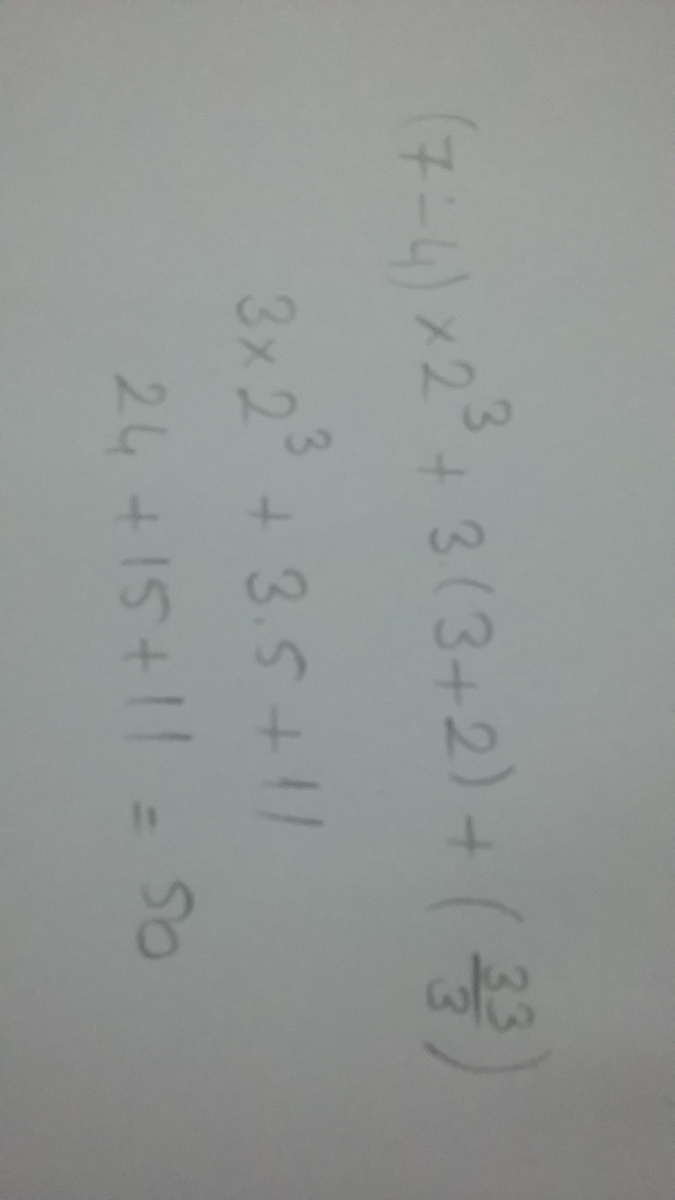 (7-4) × 2³ + 3.(3+2) + (33/3)
3 × 2³ + 3.5 + 11
24 + 15 + 11 = 50